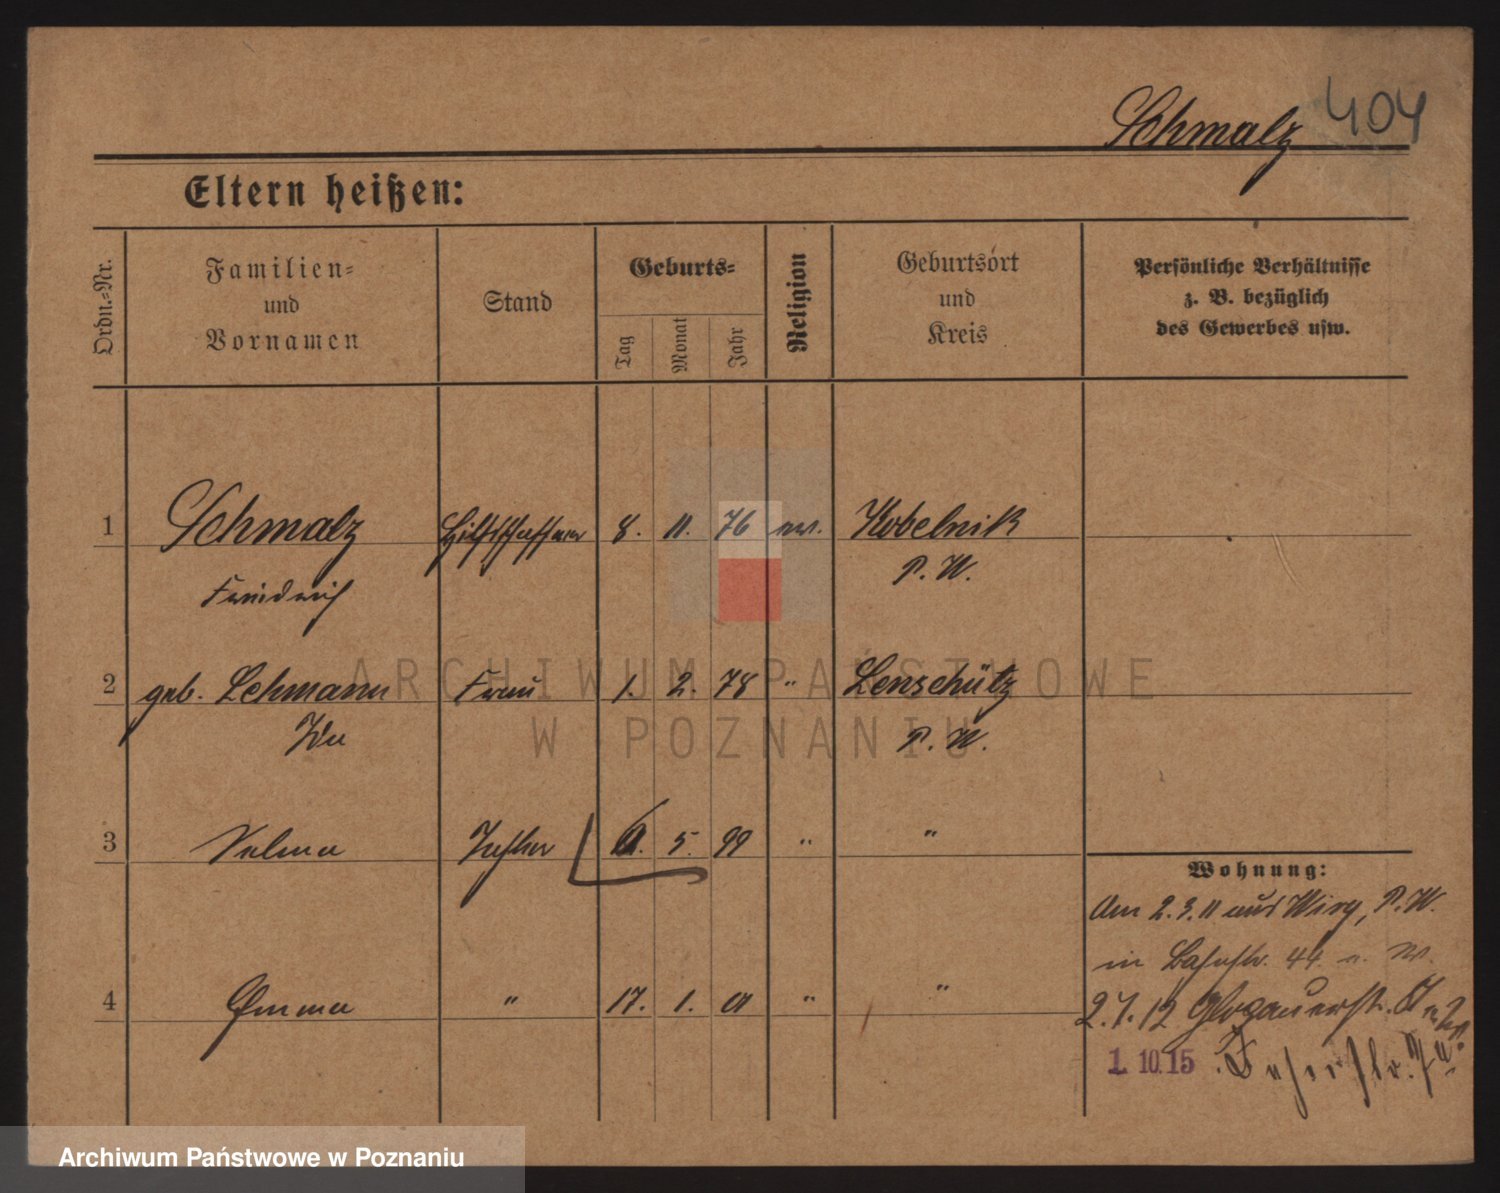 Schmalz 404
Eltern heißen:
Ordn.-Nr.
Familien-
und
Vornamen
Stand
Geburts-
Tag
Monat
Jahr
Religion
Geburtsort
und
Kreis
Persönliche Verhältnisse
z. B. bezüglich
des Gewerbes usw.
1 Schmalz Hilfsschaffner 8. 11. 76 ev. Kobelnik
Friedrich P. W.
2 geb. Lehmann Frau 1. 2. 78 " Lenschütz
Ida P. W.
3 Selma Tochter 5. 99 " "
Wohnung:
Am 2.3.11 aus P. W.
in Bahnstr. 44
4 Emma " 17. 1. 01 " "
2.7.12 Glogauerstr.
1. 10. 15
ARCHIWUM PAŃSTWOWE
W POZNANIU
Archiwum Państwowe w Poznaniu